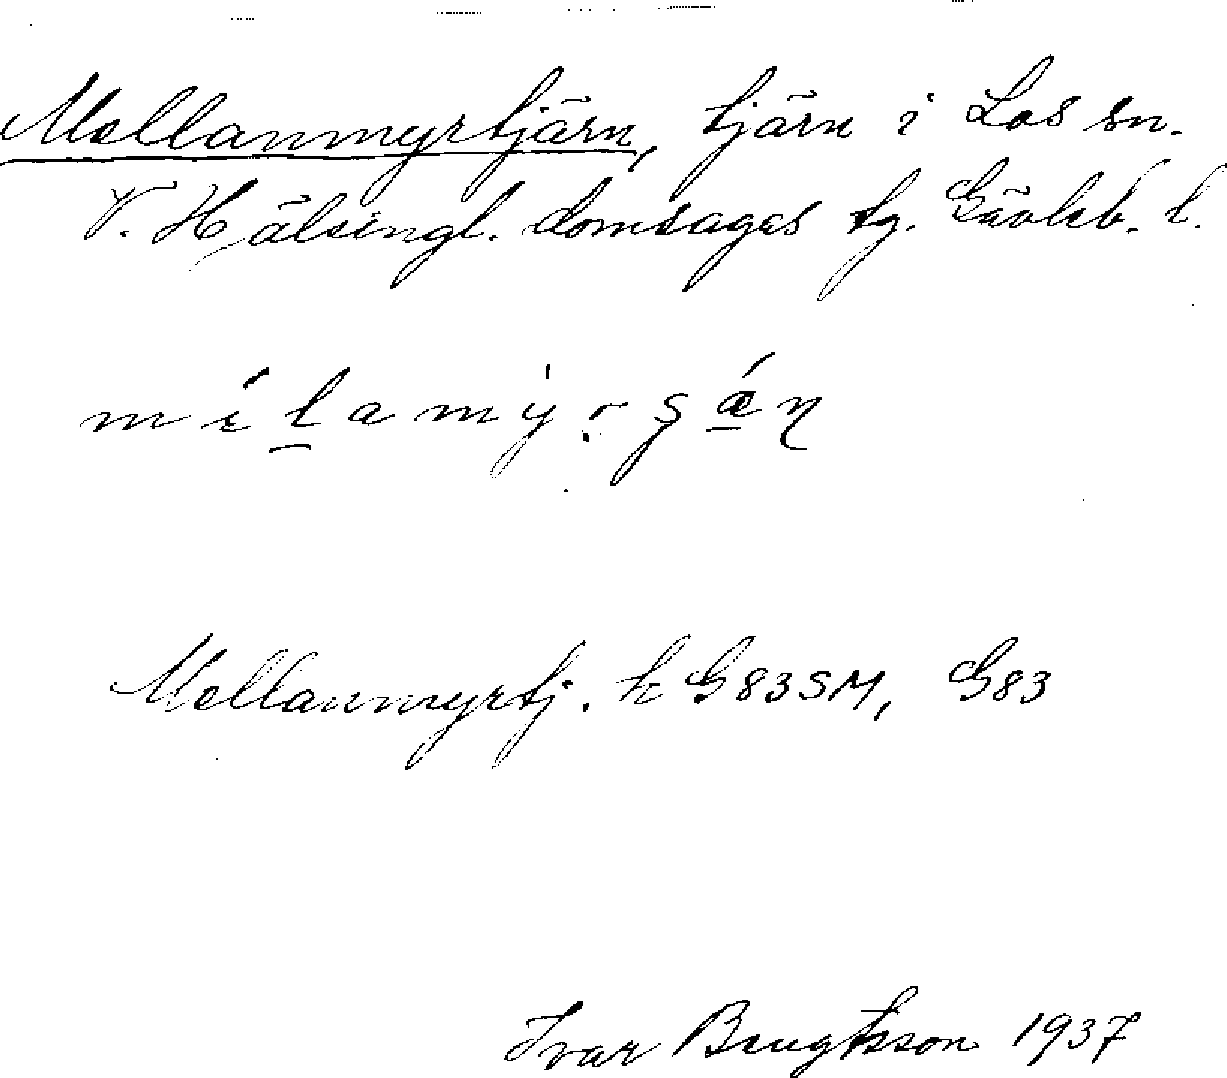 Mellanmyrtjärn, tjärn i Los sn.
V. Hälsingl. domsagas tg. Gävleb. l.
Mellanmyrtj. k G83SM, G83
Ivar Bengtsson 1937